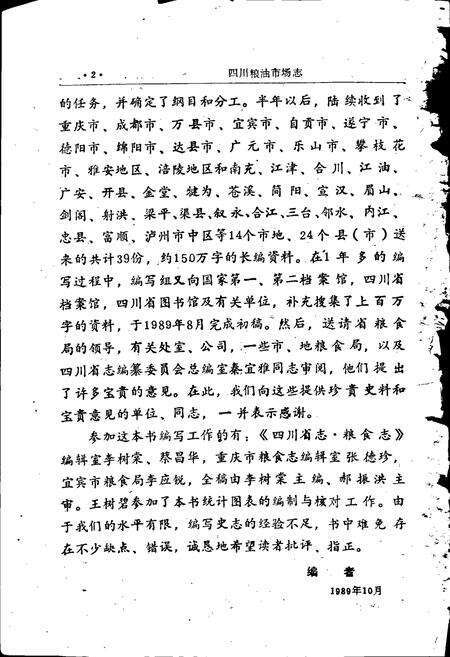 ·2·
四川粮油市场志
的任务，并确定了纲目和分工。半年以后，陆续收到了
重庆市、成都市、万县市、宜宾市、自贡市、遂宁市、
德阳市、绵阳市、达县市、广元市、乐山市、攀枝花
市、雅安地区、涪陵地区和南充、江津、合川、江油、
广安、开县、金堂、犍为、苍溪、简阳、宣汉、眉山、
剑阁、射洪、梁平、渠县、叙永、合江、三台、邻水、内江、
忠县、富顺、泸州市中区等14个市地、24个县（市）送
来的共计39份，约150万字的长编资料。在1年多的编
写过程中，编写组又向国家第一、第二档案馆，四川省
档案馆，四川省图书馆及有关单位，补充搜集了上百万
字的资料，于1989年8月完成初稿。然后，送请省粮食
局的领导，有关处室、公司，一些市、地粮食局，以及
四川省志编纂委员会总编室秦宜雅同志审阅，他们提出
了许多宝贵的意见。在此，我们向这些提供珍贵史料和
宝贵意见的单位、同志，一并表示感谢。
参加这本书编写工作的有：《四川省志·粮食志》
编辑室李树棠、蔡昌华，重庆市粮食志编辑室张德珍，
宜宾市粮食局李应锐，全稿由李树棠主编、郝振洪主
审。王树碧参加了本书统计图表的编制与核对工作。由
于我们的水平有限，编写史志的经验不足，书中难免存
在不少缺点、错误，诚恳地希望读者批评、指正。
编者
1989年10月